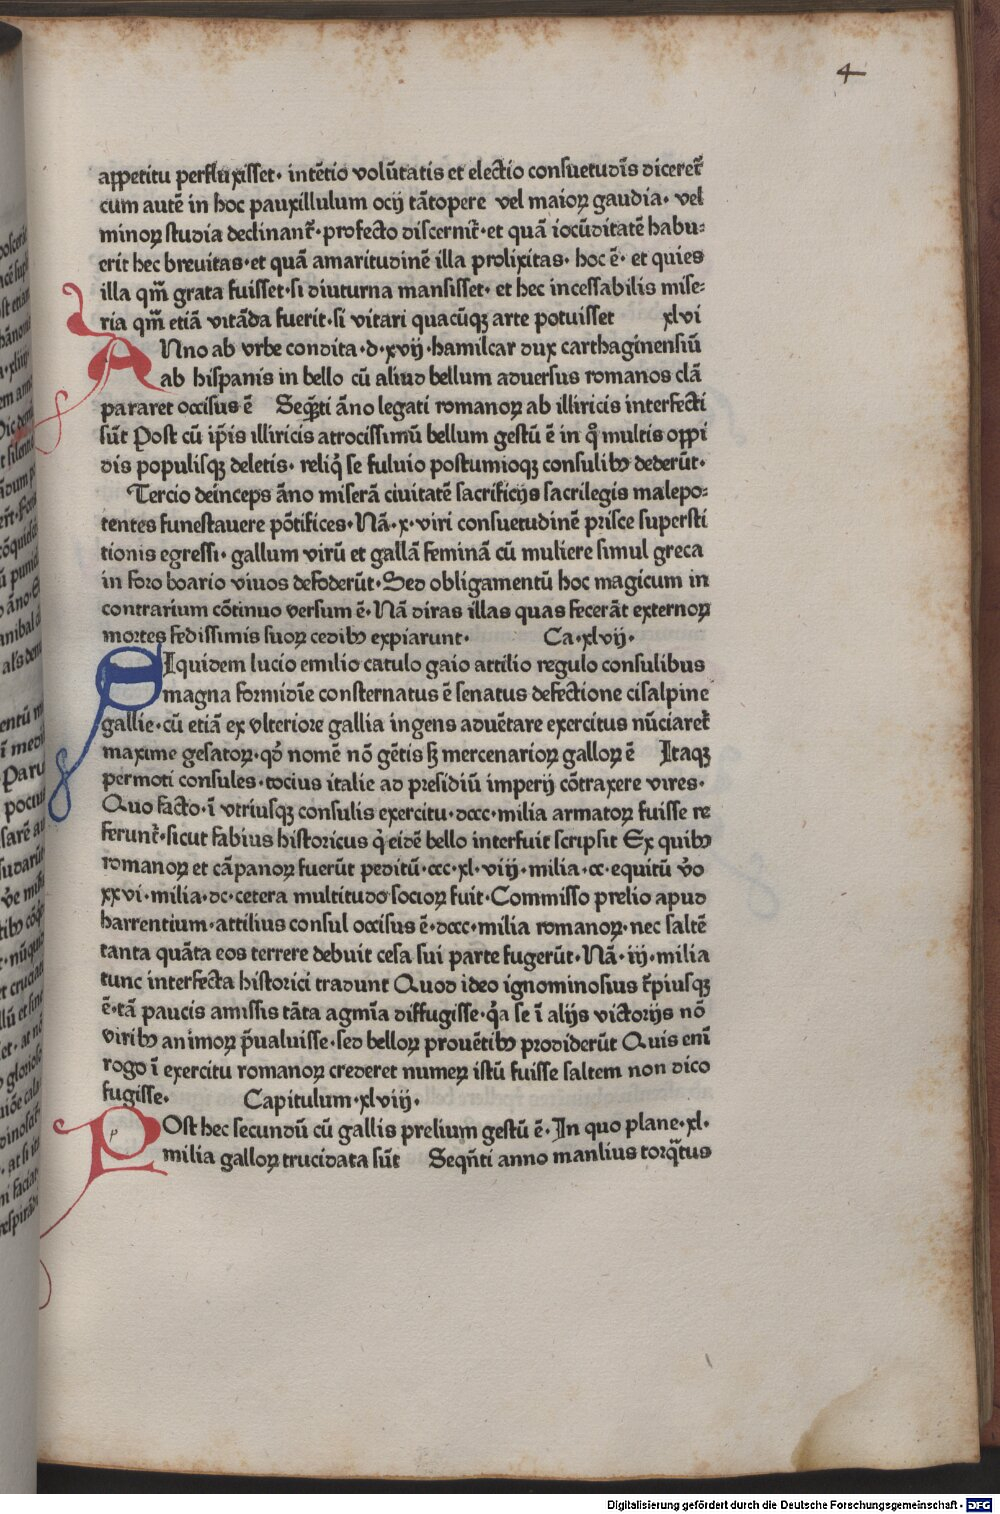 4
appetitu perfluxisset· intētio volūtatis et electio consuetudīs dicereť
cum autē in hoc pauxillulum ocij tātopere vel maioꝝ gaudia· vel
minoꝝ studia declinanť·profecto discerniť·et quā iocūditatē habu⸗
erit hec breuitas·et quā amaritudinē illa prolixitas· hoc ē· et quies
illa qm̄ grata fuisset·si diuturna mansisset· et hec incessabilis mise⸗
ria qm̄ etiā vitāda fuerit·si vitari quacūqꝫ arte potuisset xlvi
ANno ab vrbe condita·d·xvij·hamilcar dux carthaginensiū
ab hispanis in bello cū aliud bellum aduersus romanos clā
pararet occisus ē Seq̄ti āno legati romanoꝝ ab illiricis interfecti
sūt Post cū ip̄is illiricis atrocissimū bellum gestū ē in q̊ multis oppi
dis populisqꝫ deletis· reliq̇ se fuluio postumioqꝫ consulibꝰ dederūt·
Tercio deinceps āno miserā ciuitatē sacrificijs sacrilegis malepo⸗
tentes funestauere pōtifices·Nā·x·viri consuetudinē prisce supersti
tionis egressi· gallum virū et gallā feminā cū muliere simul greca
in foro boario viuos defoderūt·Sed obligamentū hoc magicum in
contrarium cōtinuo versum ē·Nā diras illas quas fecerāt externoꝝ
mortes fedissimis suoꝝ cedibꝰ expiarunt· Ca·xlvij·
SIquidem lucio emilio catulo gaio attilio regulo consulibus
magna formidīe consternatus ē senatus defectione cisalpine
gallie·cū etiā ex vlteriore gallia ingens aduētare exercitus nūciareť
maxime gesatoꝝ·qđ nomē nō gētis sꝫ mercenarioꝝ galloꝝ ē Itaqꝫ
permoti consules·tocius italie ad presidiū imperij cōtraxere vires·
Quo facto·ī vtriusqꝫ consulis exercitu·dccc·milia armatoꝝ fuisse re
ferunť·sicut fabius historicus q̇ eidē bello interfuit scripsit Ex quibꝰ
romanoꝝ et cāpanoꝝ fuerūt peditū·ccc·xl·viij·milia·cc·equitū v̊o
xxvi·milia·dc·cetera multitudo socioꝝ fuit·Commisso prelio apud
harrentium·attilius consul occisus ē·dccc·milia romanoꝝ·nec saltē
tanta quāta eos terrere debuit cesa sui parte fugerūt·Nā·iij·milia
tunc interfecta historici tradunt Quod ideo ignominosius t̄piusqꝫ
ē·tā paucis amissis tāta agmīa diffugisse·q̇a se ī alijs victorijs nō
viribꝰ animoꝝ p̄ualuisse·sed belloꝝ prouētibꝰ prodiderūt Quis enī
rogo ī exercitu romanoꝝ crederet numeꝝ istū fuisse saltem non dico
fugisse· Capitulum·xlviij·
POst hec secundū cū gallis prelium gestū ē·In quo plane·xl·
milia galloꝝ trucidata sūt Seqn̄ti anno manlius torq̄tus
Digitalisierung gefördert durch die Deutsche Forschungsgemeinschaft · DFG